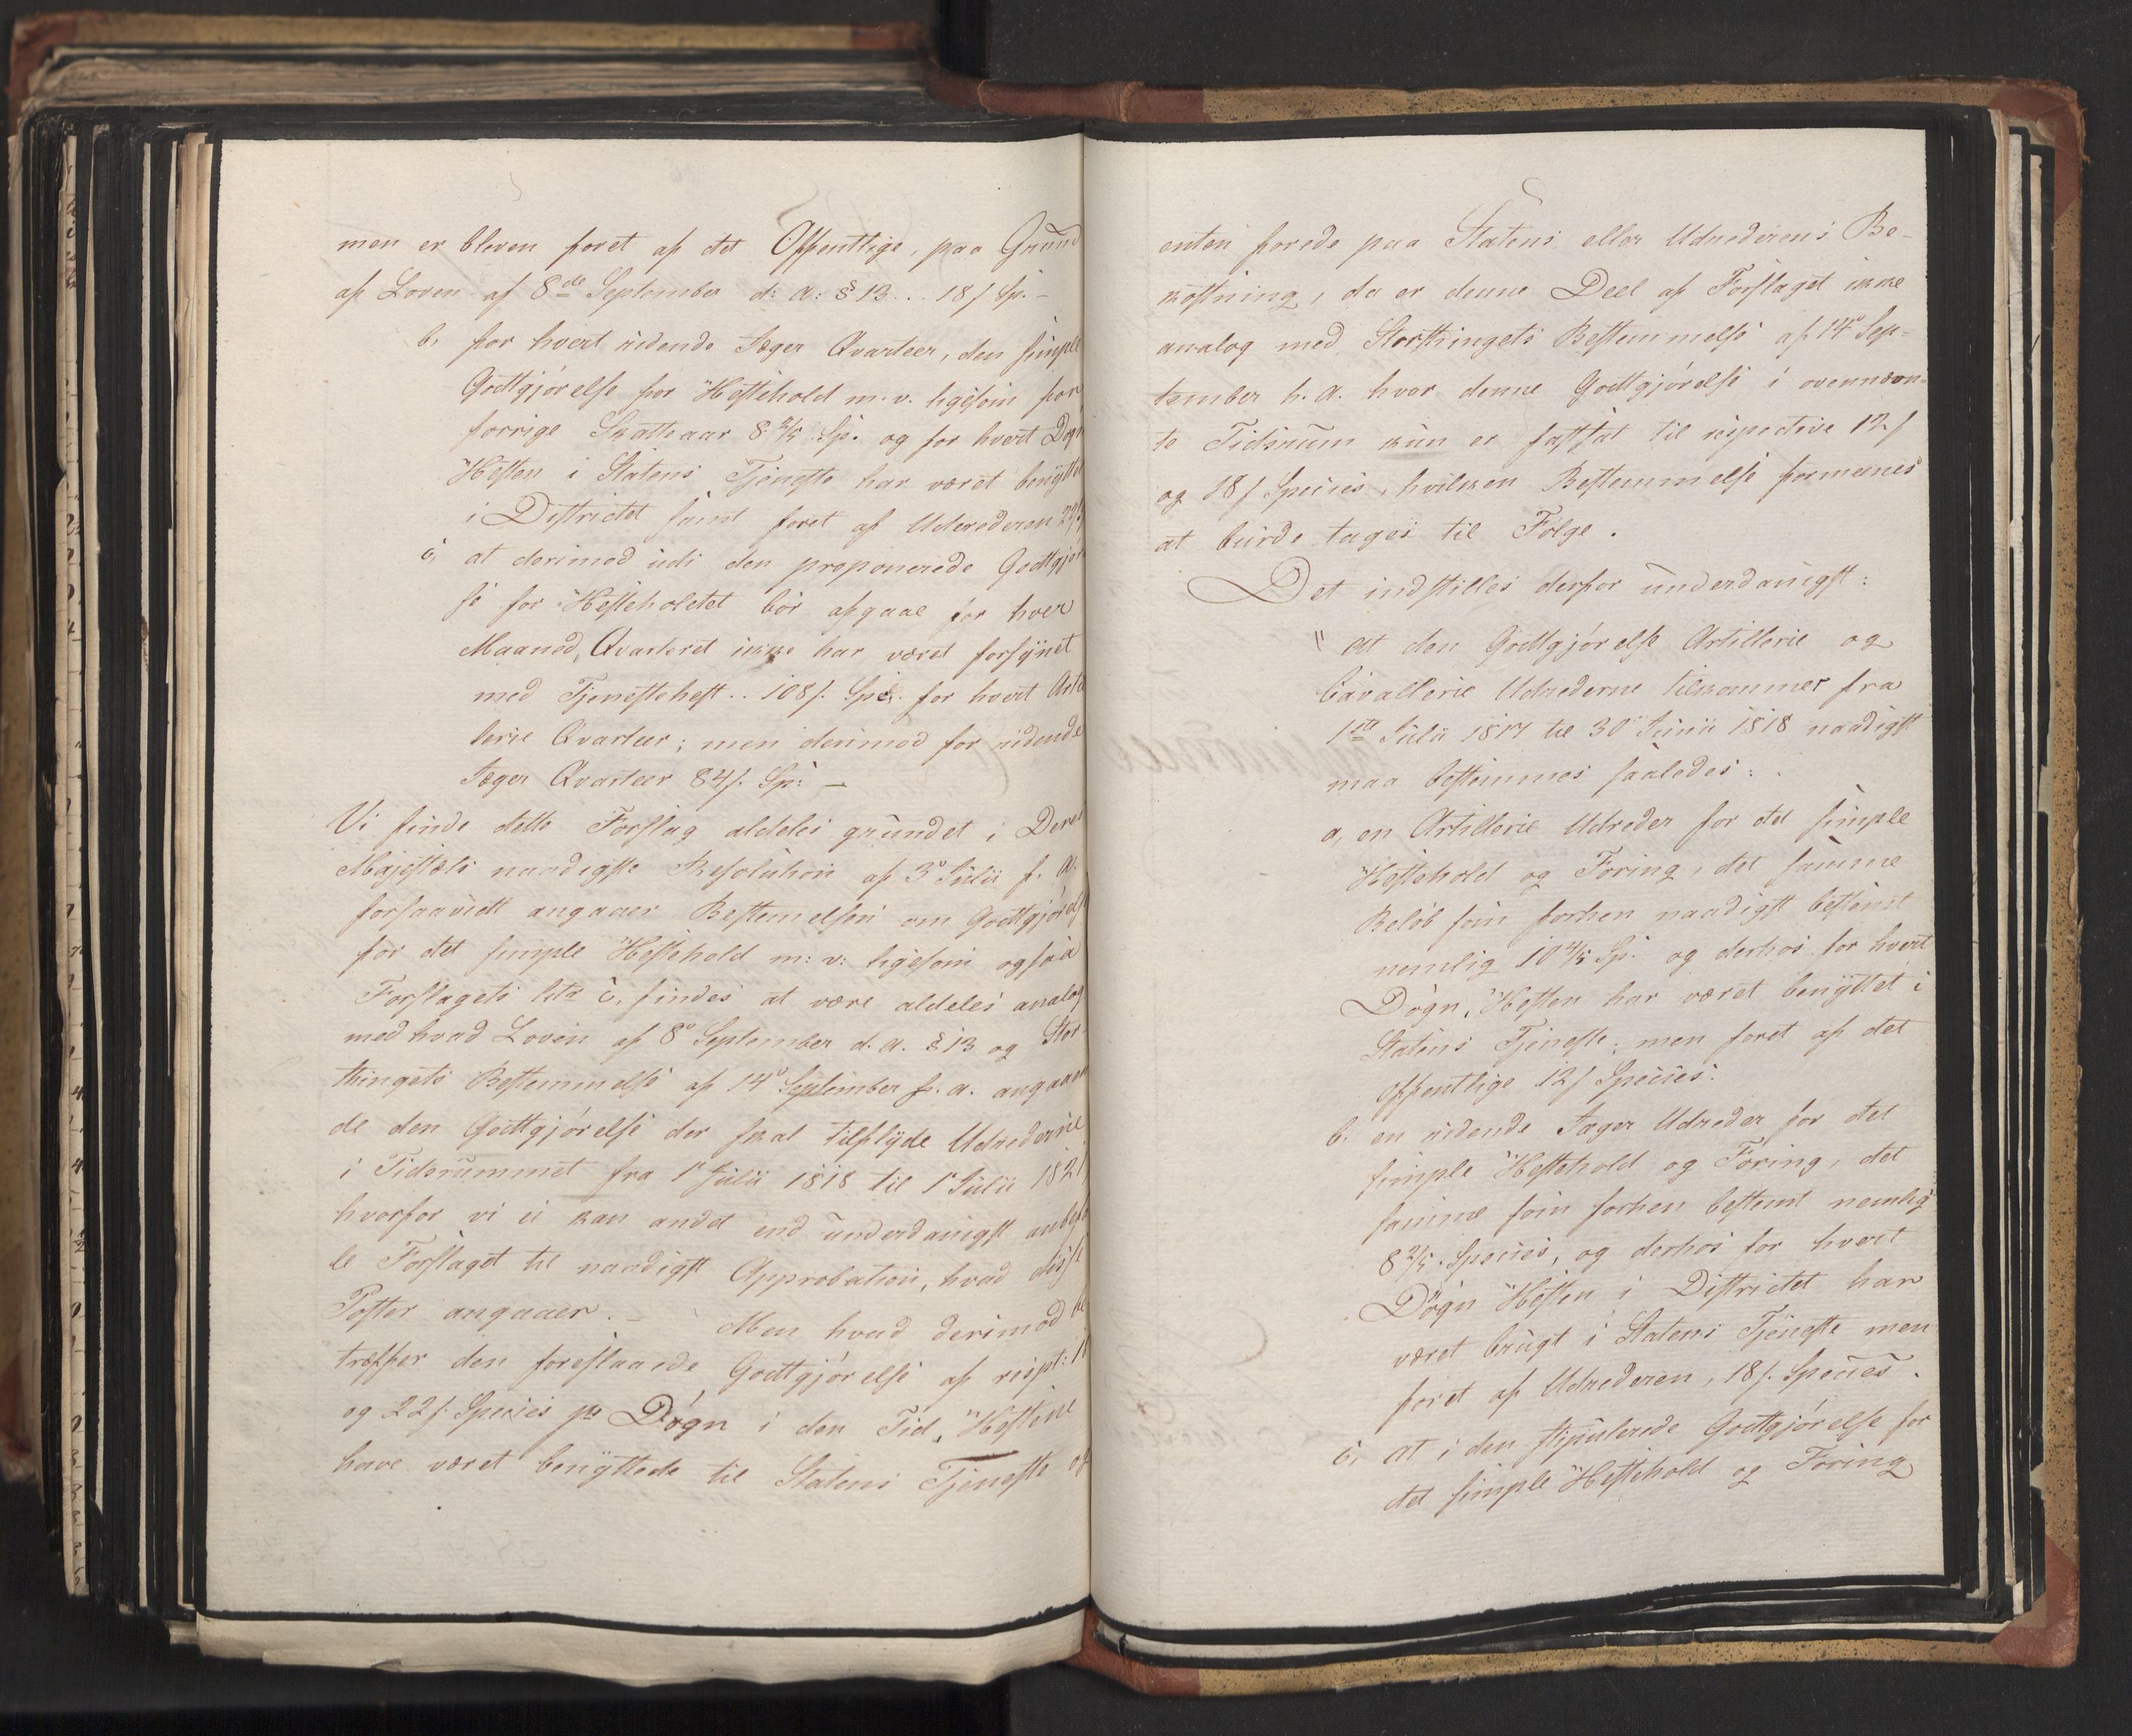 men er bleven foret af det Offentlige, paa Grund
af Loven af 8de September d: A: § 13 .. 18 ſ Sp. –
b, for hvert ridende Jæger Qvarteer, den simple
Godtgjørelse for Hestehold m. v. ligesom for
forrige Skatteaar 8 2/5 Sp. og for hvert Døgn
Hesten i Statens Tjeneste har været benyttet
i Districtet samt foret af Udrederen 22 ſ
c, at derimod udi den proponerede Godtgjørel
se for Hesteholdet bør afgaae for hver
Maaned, Qvarteret ikke har været forsynet
med Tjenestehest .. 108 ſ. Spc. for hvert Artil
lerie Qvarteer; men derimod for ridende
Jæger Qvarteer 84 ſ. Sp: –
Vi finde dette Forslag aldeles grundet i Deres
Majestæts naadigste Resolution af 3o Julii f. A.
forsaavidt angaaer Bestemelsen om Godtgjørelse
for det simple Hestehold m: v: ligesom ogsaa
Forslagets Litr c, findes at være aldeles analog
med hvad Loven af 8o September d. A. § 13 og Stor-
thingets Bestemmelse af 14o September h. a. angaaen
de den Godtgjørelse der skal tilflyde Udrederne
i Tidsrummet fra 1o Julii 1818 til 1o Julii 1821
hvorfor vi ei kan andet end underdanigst anbefa
le Forslaget til naadigst Approbation, hvad disse
Poster angaaer. – Men hvad derimod be
træffer den foreslaaede Godtgjørelse af respt: 18
og 22 ſ. Species pr Døgn i den Tid, Hestene
have været benyttede til Statens Tjeneste og
enten forede paa Statens eller Udrederens Be-
kostning, da er denne Deel af Forslaget ikke
analog med Storthingets Bestemmelse af 14o Sep-
tember h. A. hvor denne Godtgjørelse i ovennævn-
te Tidsrum kun er fastsat til respective 12 ſ
og 18 ſ Species, hvilken Bestemmelse formenes
at burde tages til Følge.
Det indstilles derfor underdanigst:
"at den Godtgjørelse Artillerie og
Cavallerie Udrederne tilkommer fra
1ste Julii 1817 til 30 Junii 1818 naadigst
maa bestemmes saaledes:
a, en Artillerie Udreder for det simple
Hestehold og Foring, det samme
Beløb som forhen naadigst bestemt
nemlig 10 4/5 Sp. og derhos for hvert
Døgn, Hesten har været benyttet i
Statens Tjeneste, men foret af det
offentlige 12 ſ Species.
b, en ridende Jæger Udreder for det
simple Hestehold og Foring, det
samme som forhen bestemt nemlig
8 2/5 Species, og derhos for hvert
Døgn Hesten i Districtet har
været brugt i Statens Tjeneste men
foret af Udrederen, 18 ſ. Species.
c, at i den stipulerede Godtgjørelse for
det simple Hestehold og Foring